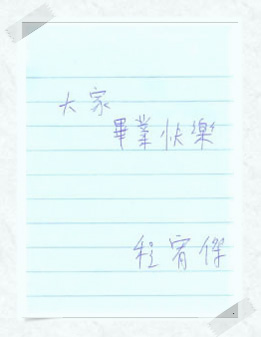 大家
畢業快樂
程宥傑